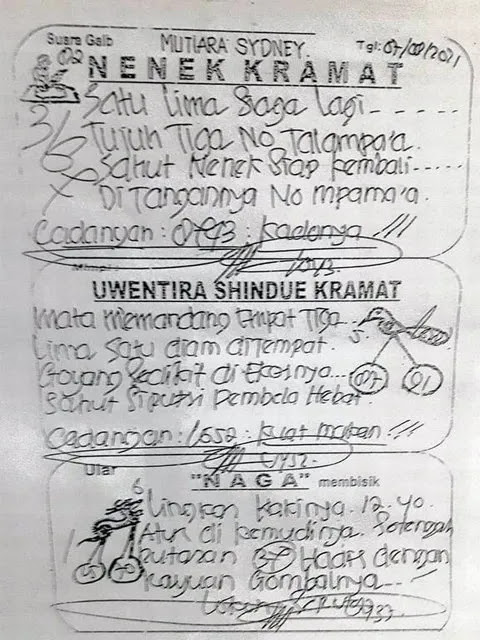 Suara Gaib MUTIARA SYDNEY. Tgl: 07/08/2021
02 NENEK KRAMAT
Satu Lima Siaga Lagi
Tujuh Tiga No Talampa'a.
Sahut Nenek Siap Kembali
Di Tangannya No mpama'a.
Cadangan : : Kadonya !!!
UWENTIRA SHINDUE KRAMAT
Mata Memandang Empat Tiga
Lima Satu diam diTempat.
Goyang Sedikit di Ekornya
07 01
Sahut Siputri Pembela Hebat
Cadangan: 1652 : Kuat makan !!!
Ular
"NAGA" membisik
Lingkar Kakinya 12.40.
Atur di Kemudinya Setengah
Putaran Hadir dengan
Rayuan Gombalnya